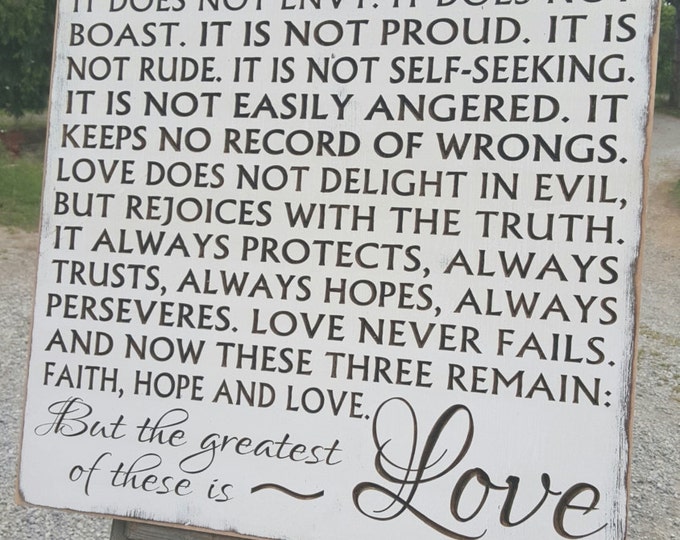 IT DOES NOT ENVY. IT DOES NOT
BOAST. IT IS NOT PROUD. IT IS
NOT RUDE. IT IS NOT SELF-SEEKING.
IT IS NOT EASILY ANGERED. IT
KEEPS NO RECORD OF WRONGS.
LOVE DOES NOT DELIGHT IN EVIL,
BUT REJOICES WITH THE TRUTH.
IT ALWAYS PROTECTS, ALWAYS
TRUSTS, ALWAYS HOPES, ALWAYS
PERSEVERES. LOVE NEVER FAILS.
AND NOW THESE THREE REMAIN:
FAITH, HOPE AND LOVE.
But the greatest
of these is ~ Love